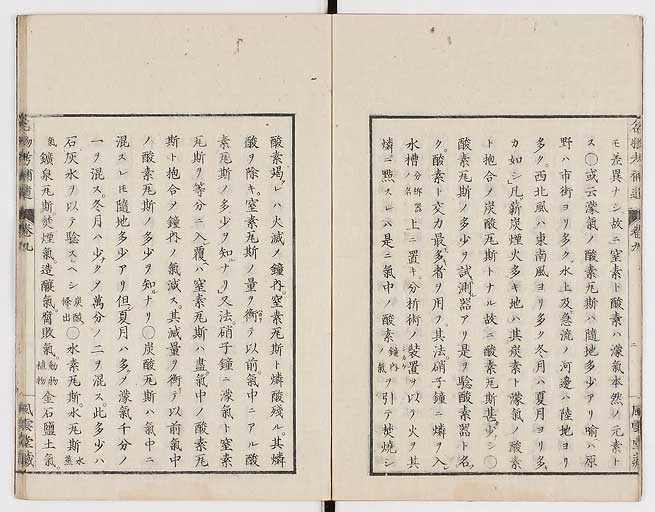 モ差異ナシ故ニ窒素ト酸素ハ濛氣本然ノ元素ト
ス○或云濛氣ノ酸素瓦斯ハ隨地多少アリ喩ハ原
野ハ市街ヨリ多ク水上及急流ノ河邊ハ陸地ヨリ
多ク西北風ハ東南風ヨリ多ク冬月ハ夏月ヨリ多
カ如シ凡薪炭煙火多キ地ハ其炭素ト濛氣ノ酸素
ト抱合ノ炭酸瓦斯トナル故ニ酸素瓦斯甚少シ○
酸素瓦斯ノ多少ヲ試測器アリ是ヲ驗酸素器ト名
ク酸素ト交力最多者ヲ用ク其法硝子鐘ニ燐ヲ入
水槽 上ニ置キ分折術ノ裝置ヲ以テ火ヲ其
燐ニ點スレハ是ニ氣中ノ酸素鐘內氣ヲ引テ焚燒シ
酸素竭レハ火滅ノ鐘內窒素瓦斯ト燐酸殘ル其燐
酸ヲ除キ窒素瓦斯ノ量ヲ衡テ以前氣中ニアル酸
素瓦斯ノ多少ヲ知ナリ又法硝子鐘ニ濛氣ト窒素
瓦斯ヲ等分ニ入覆ハ窒素瓦斯ハ盡氣中ノ酸素瓦
斯ト抱合ノ鐘內ノ氣減ス其減量ヲ衡テ以前氣中
ノ酸素瓦斯ノ多少ヲ知ナリ○炭酸瓦斯ハ氣中ニ
混スレモ隨地多少アリ但夏月ハ多ク濛氣千分ノ
一ヲ混ス冬月ハ少ク萬分ノ二ヲ混ス此多少ハ
石灰水ヲ以テ驗スヘシ炭酸條出○水素瓦斯水瓦斯水蒸
氣鑛泉瓦斯焚煙氣造釀氣腐敗氣動物植物金石鹽土氣